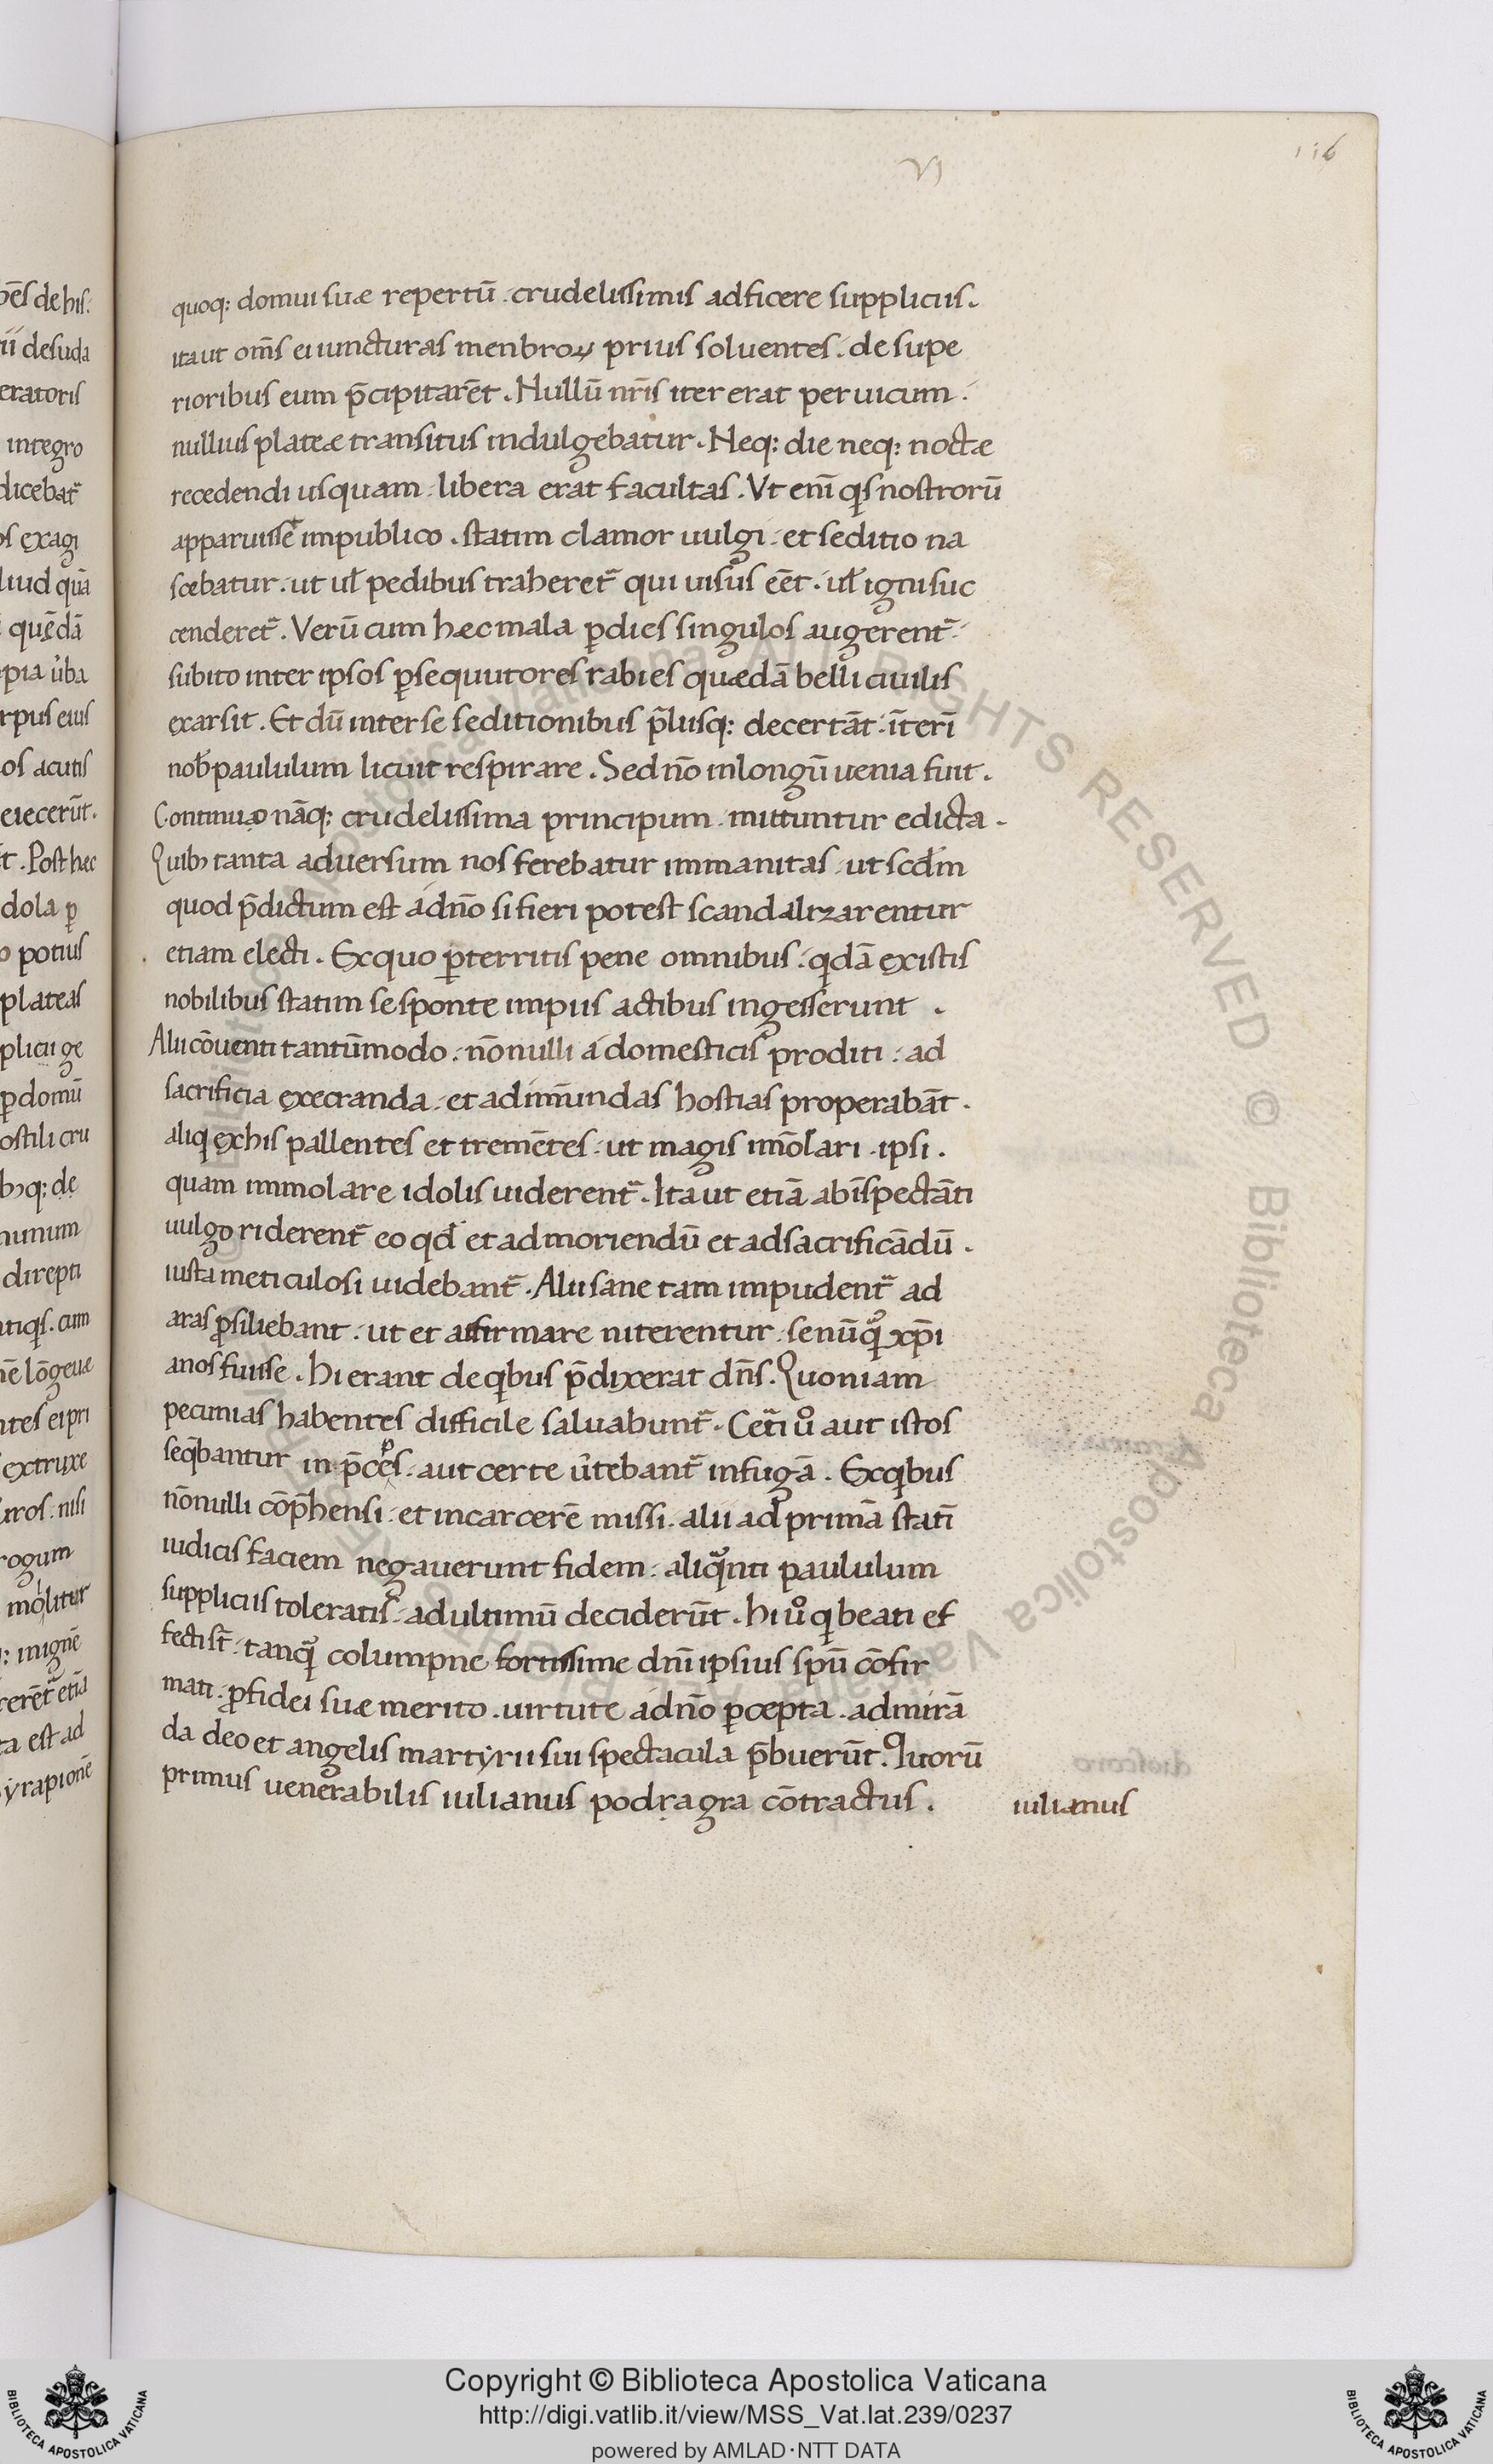 VI
116
bēs de his.
ii desuda
eratoris
integro
dicebat᷑
os exagi
liud quā
quędā
pia ūba
rpus eius
os acutis
eiecerūt.
t. Post hec
dola ꝑ
o potius
plateas
plicii ge
ꝑ domū
ostili cru
bꝫq: de
nunum
direpti
ntiqs. cum
nē lōgeue
ntes ei pri
extruxe
uros. nisi
rogum
molitur
: in ignē
rerēt᷑ etiā
ta est ad
syrapionē
quoq: domui suæ repertū. crudelissimis adficere suppliciis.
ita ut om̄s ei iuncturas menbroꝝ prius soluentes. de supe
rioribus eum p̄cipitarēt. Nullū nr̄is iter erat per uicum.
nullius plateæ transitus indulgebatur. Neq: die neq: noctæ
recedendi usquam. libera erat facultas. Vt enī qs nostrorū
apparuisse&#x363;t impublico. statim clamor uulgi. et seditio na
scebatur. ut ul̄ pedibus traheret᷑ qui uisus eēt. ul̄ igni suc
cenderet᷑. Verū cum hæc mala ꝑ dies singulos augerent᷑.
subito inter ipsos ꝑsequutores rabies quædā belli ciuilis
exarsit. Et dū inter se seditionibus p̄lusq: decertāt. īterī
nob̄ paululum licuit respirare. Sed nō in longū uenia fuit.
Continuo nāq: crudelissima principum. mittuntur edicta.
Quibꝫ tanta aduersum nos ferebatur immanitas. ut scd̄m
quod p̄dictum est a dn̄o si fieri potest scandalizarentur
etiam electi. Ex quo ꝑterritis pene omnibus. qdā ex istis
nobilibus statim se sponte impiis actibus ingesserunt.
Alii cōuenti tantūmodo. nōnulli a domesticis proditi. ad
sacrificia execranda. et ad inmundas hostias properabāt.
aliqi ex his pallentes et tremētes. ut magis imōlari ipsi.
quam immolare idolis uiderent᷑. Ita ut etiā ab īspectāti
uulgo riderent᷑ eo qd̄ et ad moriendū et ad sacrificādū.
iusta meticulosi uidebant᷑. Alii sane tam impudent᷑ ad
aras ꝓsiliebant. ut et affirmare niterentur. se nūqᷓ xp̄i
anos fuisse. Hi erant de qibus p̄dixerat dn̄s. Quoniam
pecunias habentes difficile saluabunt᷑. Cet᷑i uo̊ aut istos
seqbantur in p̄ceps. aut certe u̓tebant᷑ in fugā. Ex qibus
nōnulli cōp̄hensi. et in carcerē missi. alii ad primā statī
iudicis faciem negauerunt fidem. aliqᷓnti paululum
suppliciis toleratis. ad ultimū deciderūt. Hi uo̊ qi beati ef
fecti st̄. tanqᷓ columpne fortissime dn̄i ipsius spū cōfir
mati. ꝓ fidei suæ merito. uirtute a dn̄o ꝑcepta. admirā
da deo et angelis martyrii sui spectacula p̄buerūt. Quorū
primus uenerabilis iulianus podragra cōtractus.
iulianus
Copyright © Biblioteca Apostolica Vaticana
http://digi.vatlib.it/view/MSS_Vat.lat.239/0237
powered by AMLAD·NTT DATA
BIBLIOTECA APOSTOLICA VATICANA
BIBLIOTECA APOSTOLICA VATICANA